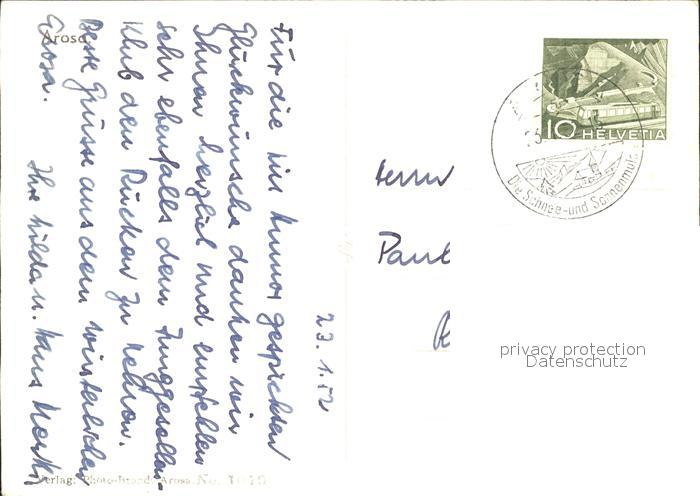 23. 1. 52
Für die mit Humor gespickten
Glückwünsche danken wir
Ihnen herzlich und empfehlen
sehr ebenfalls dem Junggesellen-
klub den Rücken zu kehren.
Beste Grüsse aus dem winterlichen
Arosa.
Ihre Hilda u. Hans
Arosa
Verlag: Photo-Brandt, Arosa. No.
10 HELVETIA
Die Schnee- und Sonnenmulde
Herrn
Paul
privacy protection
Datenschutz